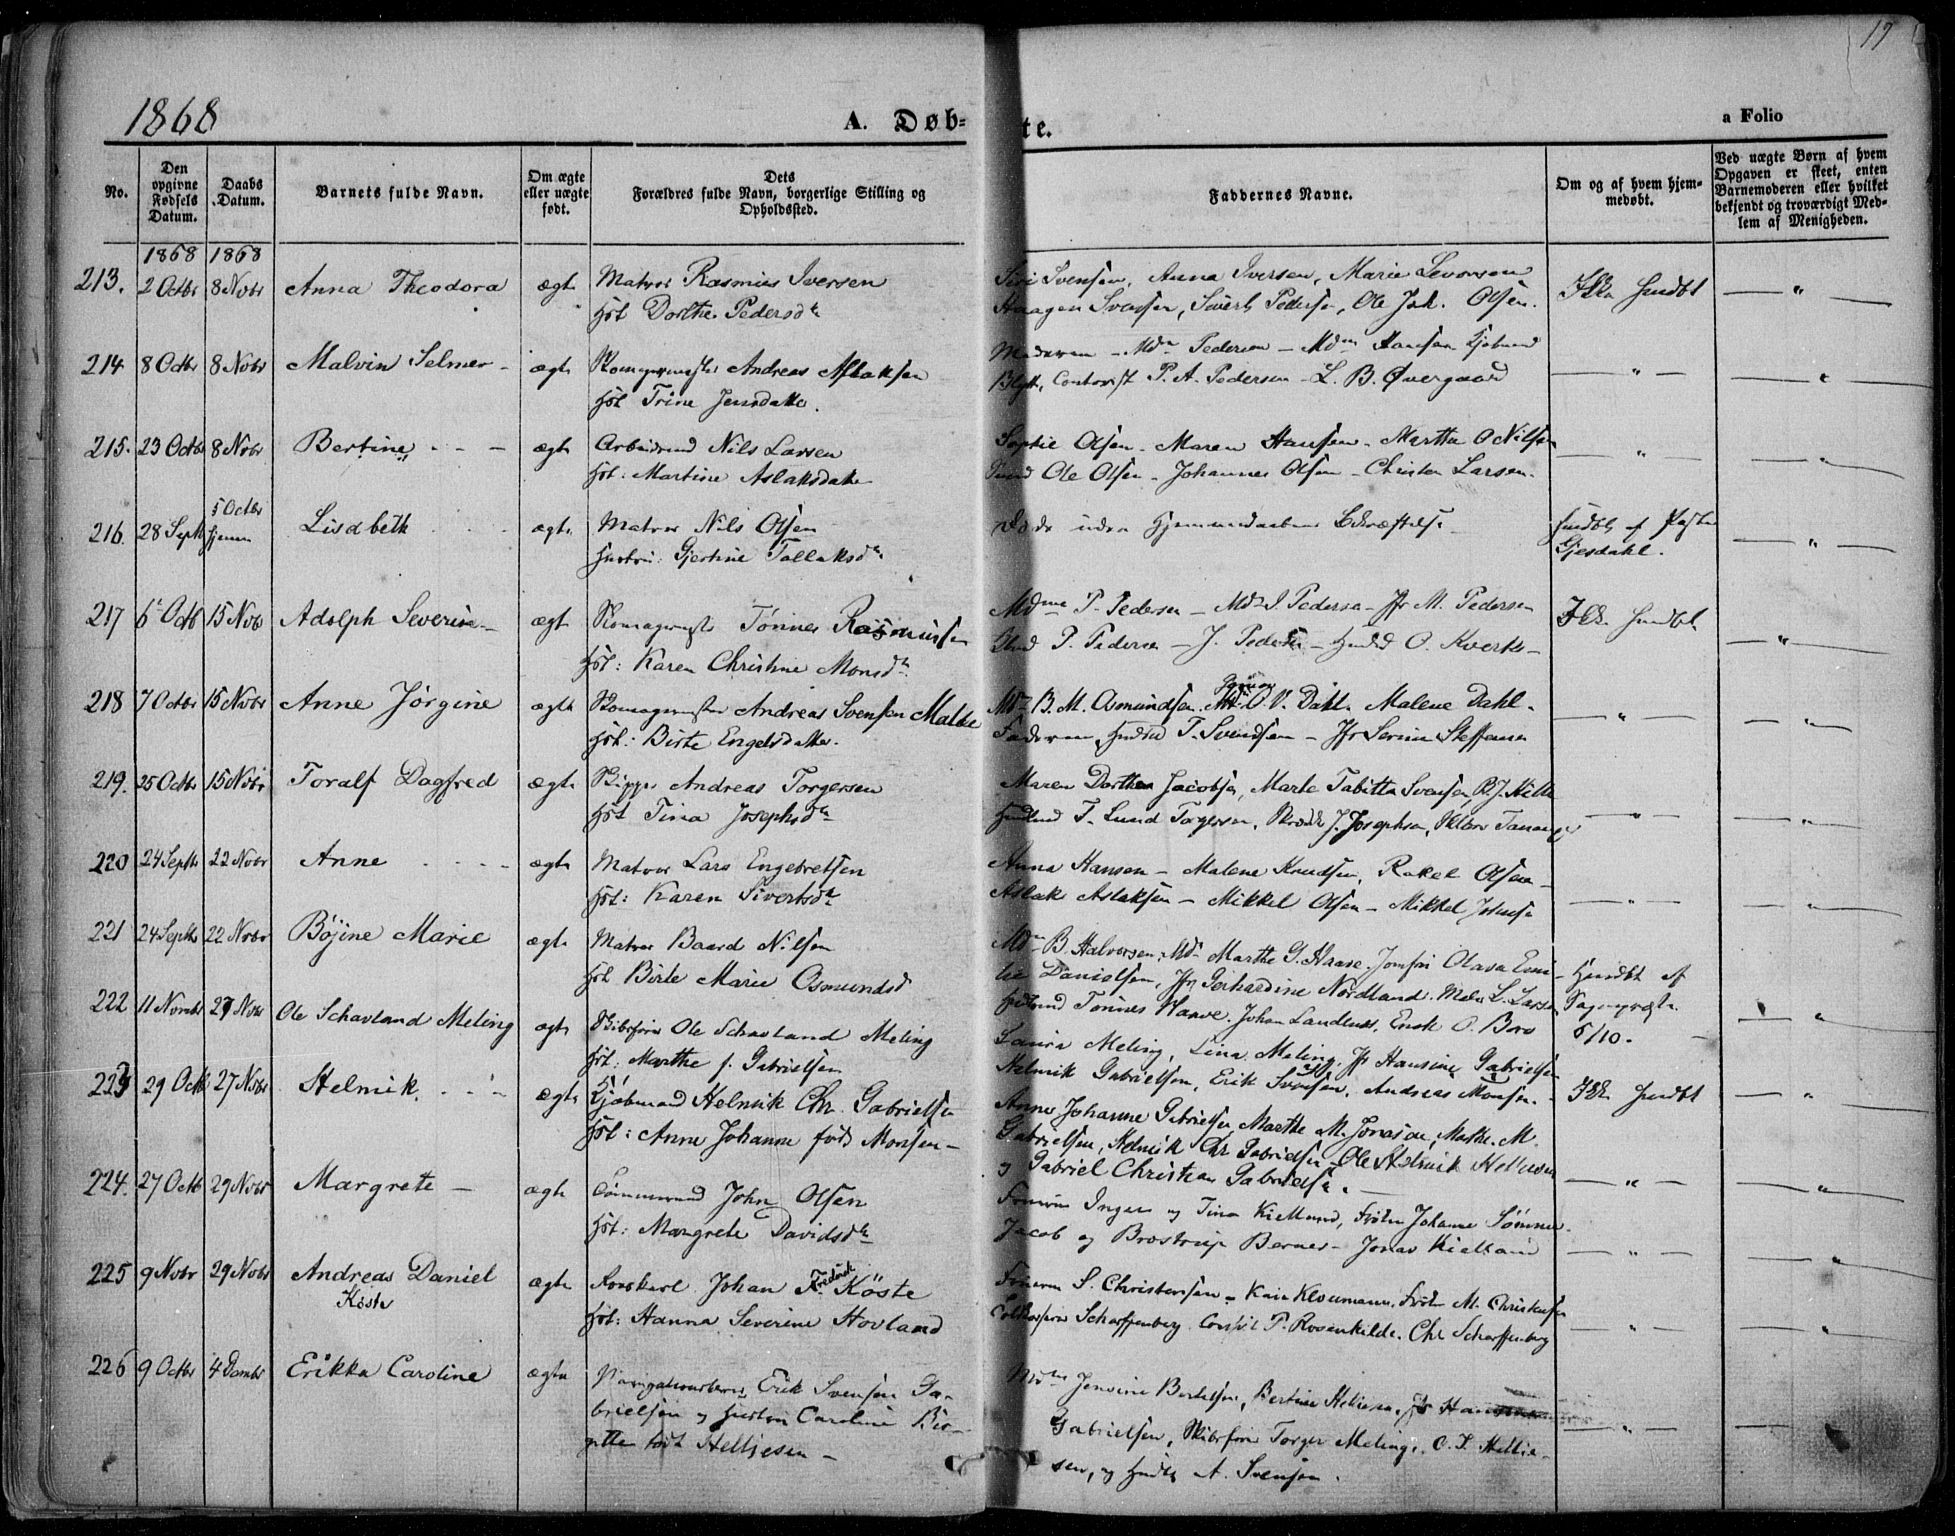 17
1868
A. Døb-
te.
a Folio
No.
Den opgivne Fødsels Datum.
Daabs Datum.
Barnets fulde Navn.
Om ægte eller uægte født.
Dets Forældres fulde Navn, borgerlige Stilling og Opholdssted.
Faddernes Navne.
Om og af hvem hjem-medøbt.
Ved uægte Børn af hvem Opgaven er skeet, enten Barnemoderen eller hvilket bekjendt og troværdigt Med-lem af Menigheden.
1868 1868
213. 2 Octbr 8 Novbr Anna Theodora ægte Matros Rasmus Iversen
Hst Dorthe Pedersdtr
Siri Svensen, Anna Iversen, Marie Levorsen
Haagen Svensen, Sivert Pedersen, Ole Joh. Olsen.
Ikke hmdbt
214 8 Octbr 8 Novbr Malvin Selmer - ægte Skomagermester Andreas Aslaksen
Hst Trine Jensdatter.
Moderen - Mdm Pedersen - Mdm Hansen
Contorist P. A. Pedersen - L. B. Øvergaard
215. 23 Octbr 8 Novbr Bertine - - - ægte Arbeidsmd Nils Larsen
Hst: Martine Aslaksdatter
Sophie Olsen - Maren Hansen - Martha O Nilsen
Ole Olsen - Johannes Olsen - Christen Larsen.
216. 28 Septbr 5 Octbr hjemme Lisabeth ægte Matros Nils Olsen
Hustru: Gjertine Tollaksdtr
Døde uden Hjemmedaabens Bekræftelse
hmdbt af Pastor
Gjesdahl.
217 6 Octb 15 Novbr Adolph Severin - ægte Skomagermester Tønnes Rasmussen
Hst: Karen Christine Monsdtr
Mdme T. Pedersen - Mdm S. Pedersen - Jfr M. Pedersen
P. Pedersen - J. Pedersen - O. Kverk -
Ikke hmdbt
218 7 Octbr 15 Novbr Anne Jørgine ægte Skomagermester Andreas Svensen Malde
Hst: Birte Engelsdatter.
Mdm B. M. Osmundsen. O. V. Dahl. Malene Dahl.
Faderen, T. Svendsen - Jfr Serine Steffensen
219. 25 Octbr 15 Novbr Toralf Dagfred ægte Skipper Andreas Torgersen
Hst Tina Josephsdtr
Maren Dorthea Jacobsen, Marte Tabitta Svensen,
T. Lund Torgersen, J. Josephsen,
220 24 Septbr 22 Novbr Anne ægte Matros Lars Engebretsen
Hst: Karen Sivertsdtr
Anna Hansen - Malene Knudsen, Rakel Olsen -
Aslak Aslaksen - Mikkel Olsen - Mikkel
221 24 Septbr 22 Novbr Bøjine Marie ægte Matros Baard Nilsen
Hst Birte Marie Osmundsd
Mdm B Halvorsen, Mdm Marthe G. Haave, Jomfru Olava Emi-
lie Danielsen, Jfr Gerhardine Nordland. L. Larsen
Tønnes Haave. Johan
Hmdbt af
6/10.
222 11 Novmbr 27 Novbr Ole Schavland Meling ægte Skibsfører Ole Schavland Meling
Hst: Marthe f. Gabrielsen
Laura Meling, Lina Meling, Jfr Hansine Gabrielsen
Helmik Gabrielsen, Erik Svensen, Andreas Monsen.
223 29 Octb 27 Novbr Helmik. ægte Kjøbmand Helmik Chr. Gabrielsen
Hst: Anne Johanne født Monsen -
Anne Johanne Gabrielsen, Marthe M. Jonassen, Marthe M.
Gabrielsen, Helmik Chr Gabrielsen
og Gabriel Christian Gabrielsen. -
Ikke hmdbt
224. 27 Octb 29 Novbr Margrete - ægte John Olsen
Hst: Margrete Davidsdtr
Inger og Tina Kielland, Frøken Johanne Sømme.
Jacob og Brostrup Berner - Jonas Kielland
225 9 Novbr 29 Novbr Andreas Daniel
Køste
ægte Johan Fredrik Köste
Hst: Hanna Severine Hovland
Fruerne S. Christensen - Klowmann, Frøken M. Christensen
Scharffenberg. Consul P. Rosenkilde. Chr Scharffenberg
226 9 Octbr 4 Dcmbr Erikka Caroline ægte Navigationslærer Erik Svensen Ga-
brielsen og Hustru Caroline Bir-
gitte født Helliesen -
Mdm Jensine Bertelsen, Bertine Helliesen, Jfr
Gabrielsen, Skibsfører Torger Meling, O. S. Hellie-
sen, og A. Svensen.